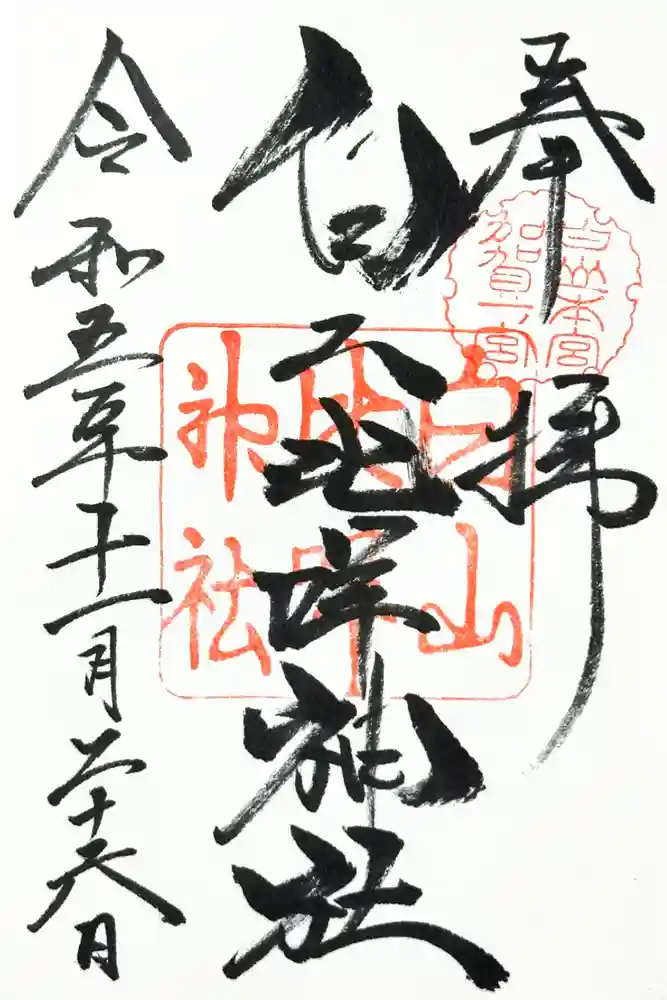 奉拝
白山本宮
加賀一ノ宮
白山比咩神社
白山比咩神社
令和五年十一月二十六日